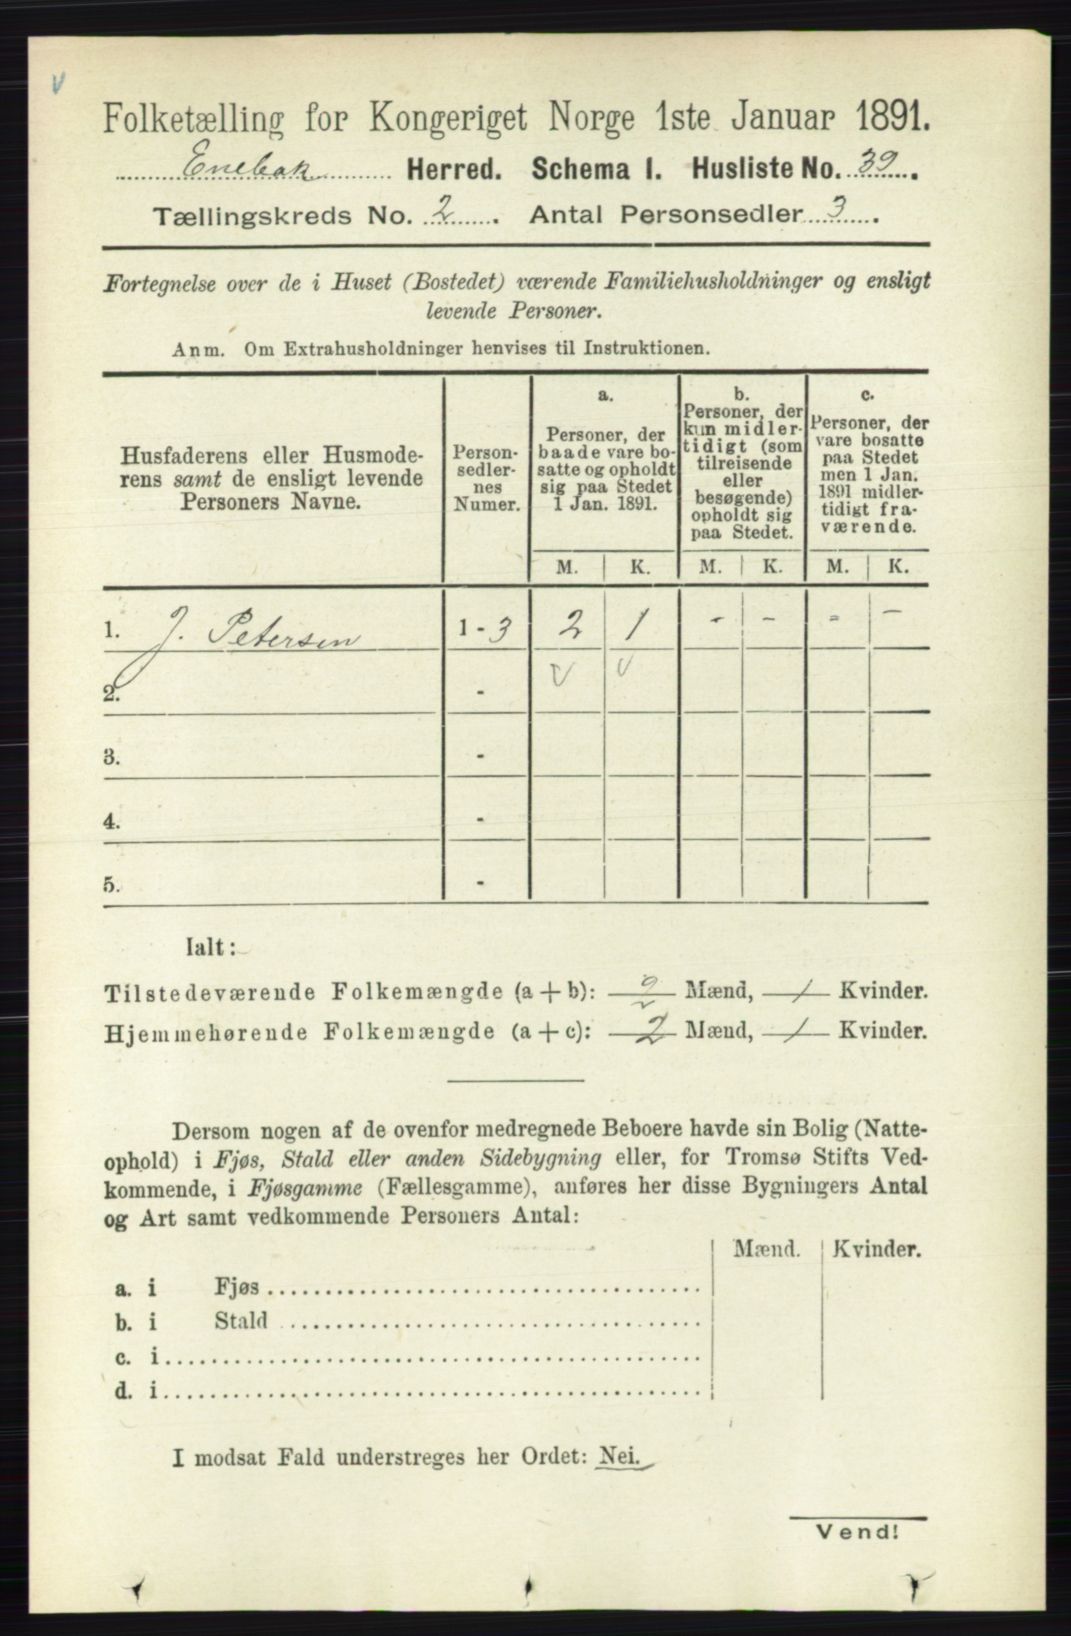 Folketælling for Kongeriget Norge 1ste Januar 1891.
Enebak Herred. Schema I. Husliste No. 39.
Tællingskreds No. 2. Antal Personsedler 3.
Fortegnelse over de i Huset (Bostedet) værende Familiehusholdninger og ensligt
levende Personer.
Anm. Om Extrahusholdninger henvises til Instruktionen.
Husfaderens eller Husmode-
rens samt de ensligt levende
Personers Navne.
Person-
sedler-
nes
Numer.
a.
Personer, der
baade vare bo-
satte og opholdt
sig paa Stedet
1 Jan. 1891.
b.
Personer, der
kun midler-
tidigt (som
tilreisende
eller
besøgende)
opholdt sig
paa Stedet.
c.
Personer, der
vare bosatte
paa Stedet
men 1 Jan.
1891 midler-
tidigt fra-
værende.
M. K. M. K. M. K.
1. J. Petersen 1 - 3 2 1 - - - -
v v
2. -
3. -
4. -
5. -
Ialt:
Tilstedeværende Folkemængde (a + b): 2 Mænd, 1 Kvinder.
Hjemmehørende Folkemængde (a + c): 2 Mænd, 1 Kvinder.
Dersom nogen af de ovenfor medregnede Beboere havde sin Bolig (Natte-
ophold) i Fjøs, Stald eller anden Sidebygning eller, for Tromsø Stifts Ved-
kommende, i Fjøsgamme (Fællesgamme), anføres her disse Bygningers Antal
og Art samt vedkommende Personers Antal:
Mænd. Kvinder.
a. i Fjøs
b. i Stald
c. i
d. i
I modsat Fald understreges her Ordet: Nei.
Vend!